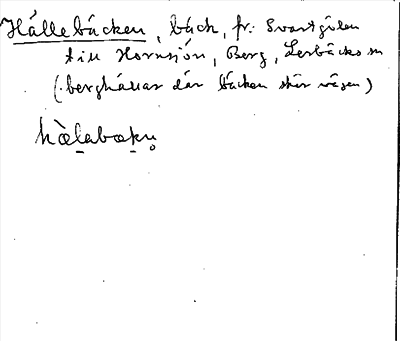 Hällebäcken, bäck, fr. Svartgölen
till Hornsjön, Berg, Lerbäcks sn
(: berghällar där bäcken skär vägen)
hæ̀labækn̥